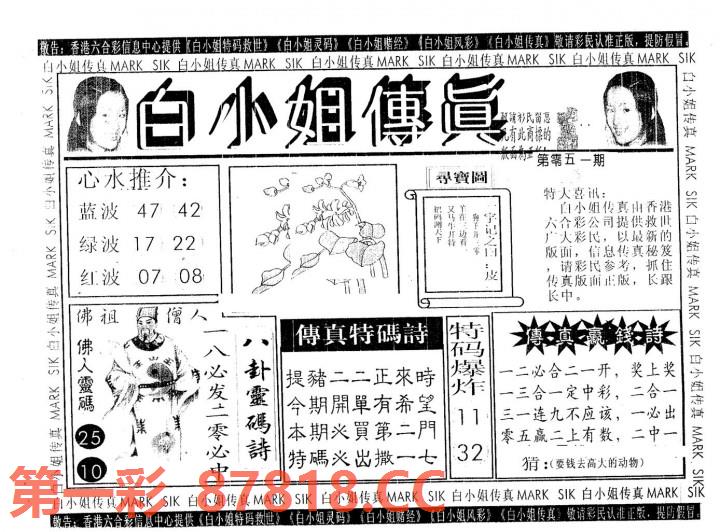 敬告：香港六合彩信息中心提供《白小姐特码救世》《白小姐灵码》《白小姐赌经》《白小姐风彩》《白小姐传真》敬请彩民认准正版，提防假冒。
白小姐传真MARK SIK 白小姐传真MARK SIK 白小姐传真MARK SIK 白小姐传真MARK SIK 白小姐传真MARK SIK
白小姐傳眞
第零五一期
心水推介：
蓝波 47 42
绿波 17 22
红波 07 08
尋寶圖
字记之曰：皮
特大喜讯：
白小姐传真由香港
六合彩公司提供救世
广大彩民，以最新的
版面，信息传真秘笈
，请彩民参考，抓住
传真版面正版，长跟
长中。
佛祖僧人
佛人靈碼
25
10
八卦靈碼詩
一八必发二零必中
傳真特碼詩
提豬二二正來時
今期開單有希望
本期必買第二門
特碼必出撒一七
特码爆炸
11
32
傳真贏錢詩
一二必合二一开，奖上奖
一三合一定中彩，二合一
三一连九不应该，一必出
零五赢二上有数，二中一
猜：(要钱去高大的动物)
第一彩 87818.CC
白小姐传真MARK SIK 白小姐传真MARK SIK 白小姐传真MARK SIK 白小姐传真MARK SIK 白小姐传真MARK SIK
敬告：香港六合彩信息中心提供《白小姐特码救世》《白小姐灵码》《白小姐赌经》《白小姐风彩》《白小姐传真》敬请彩民认准正版，提防假冒。